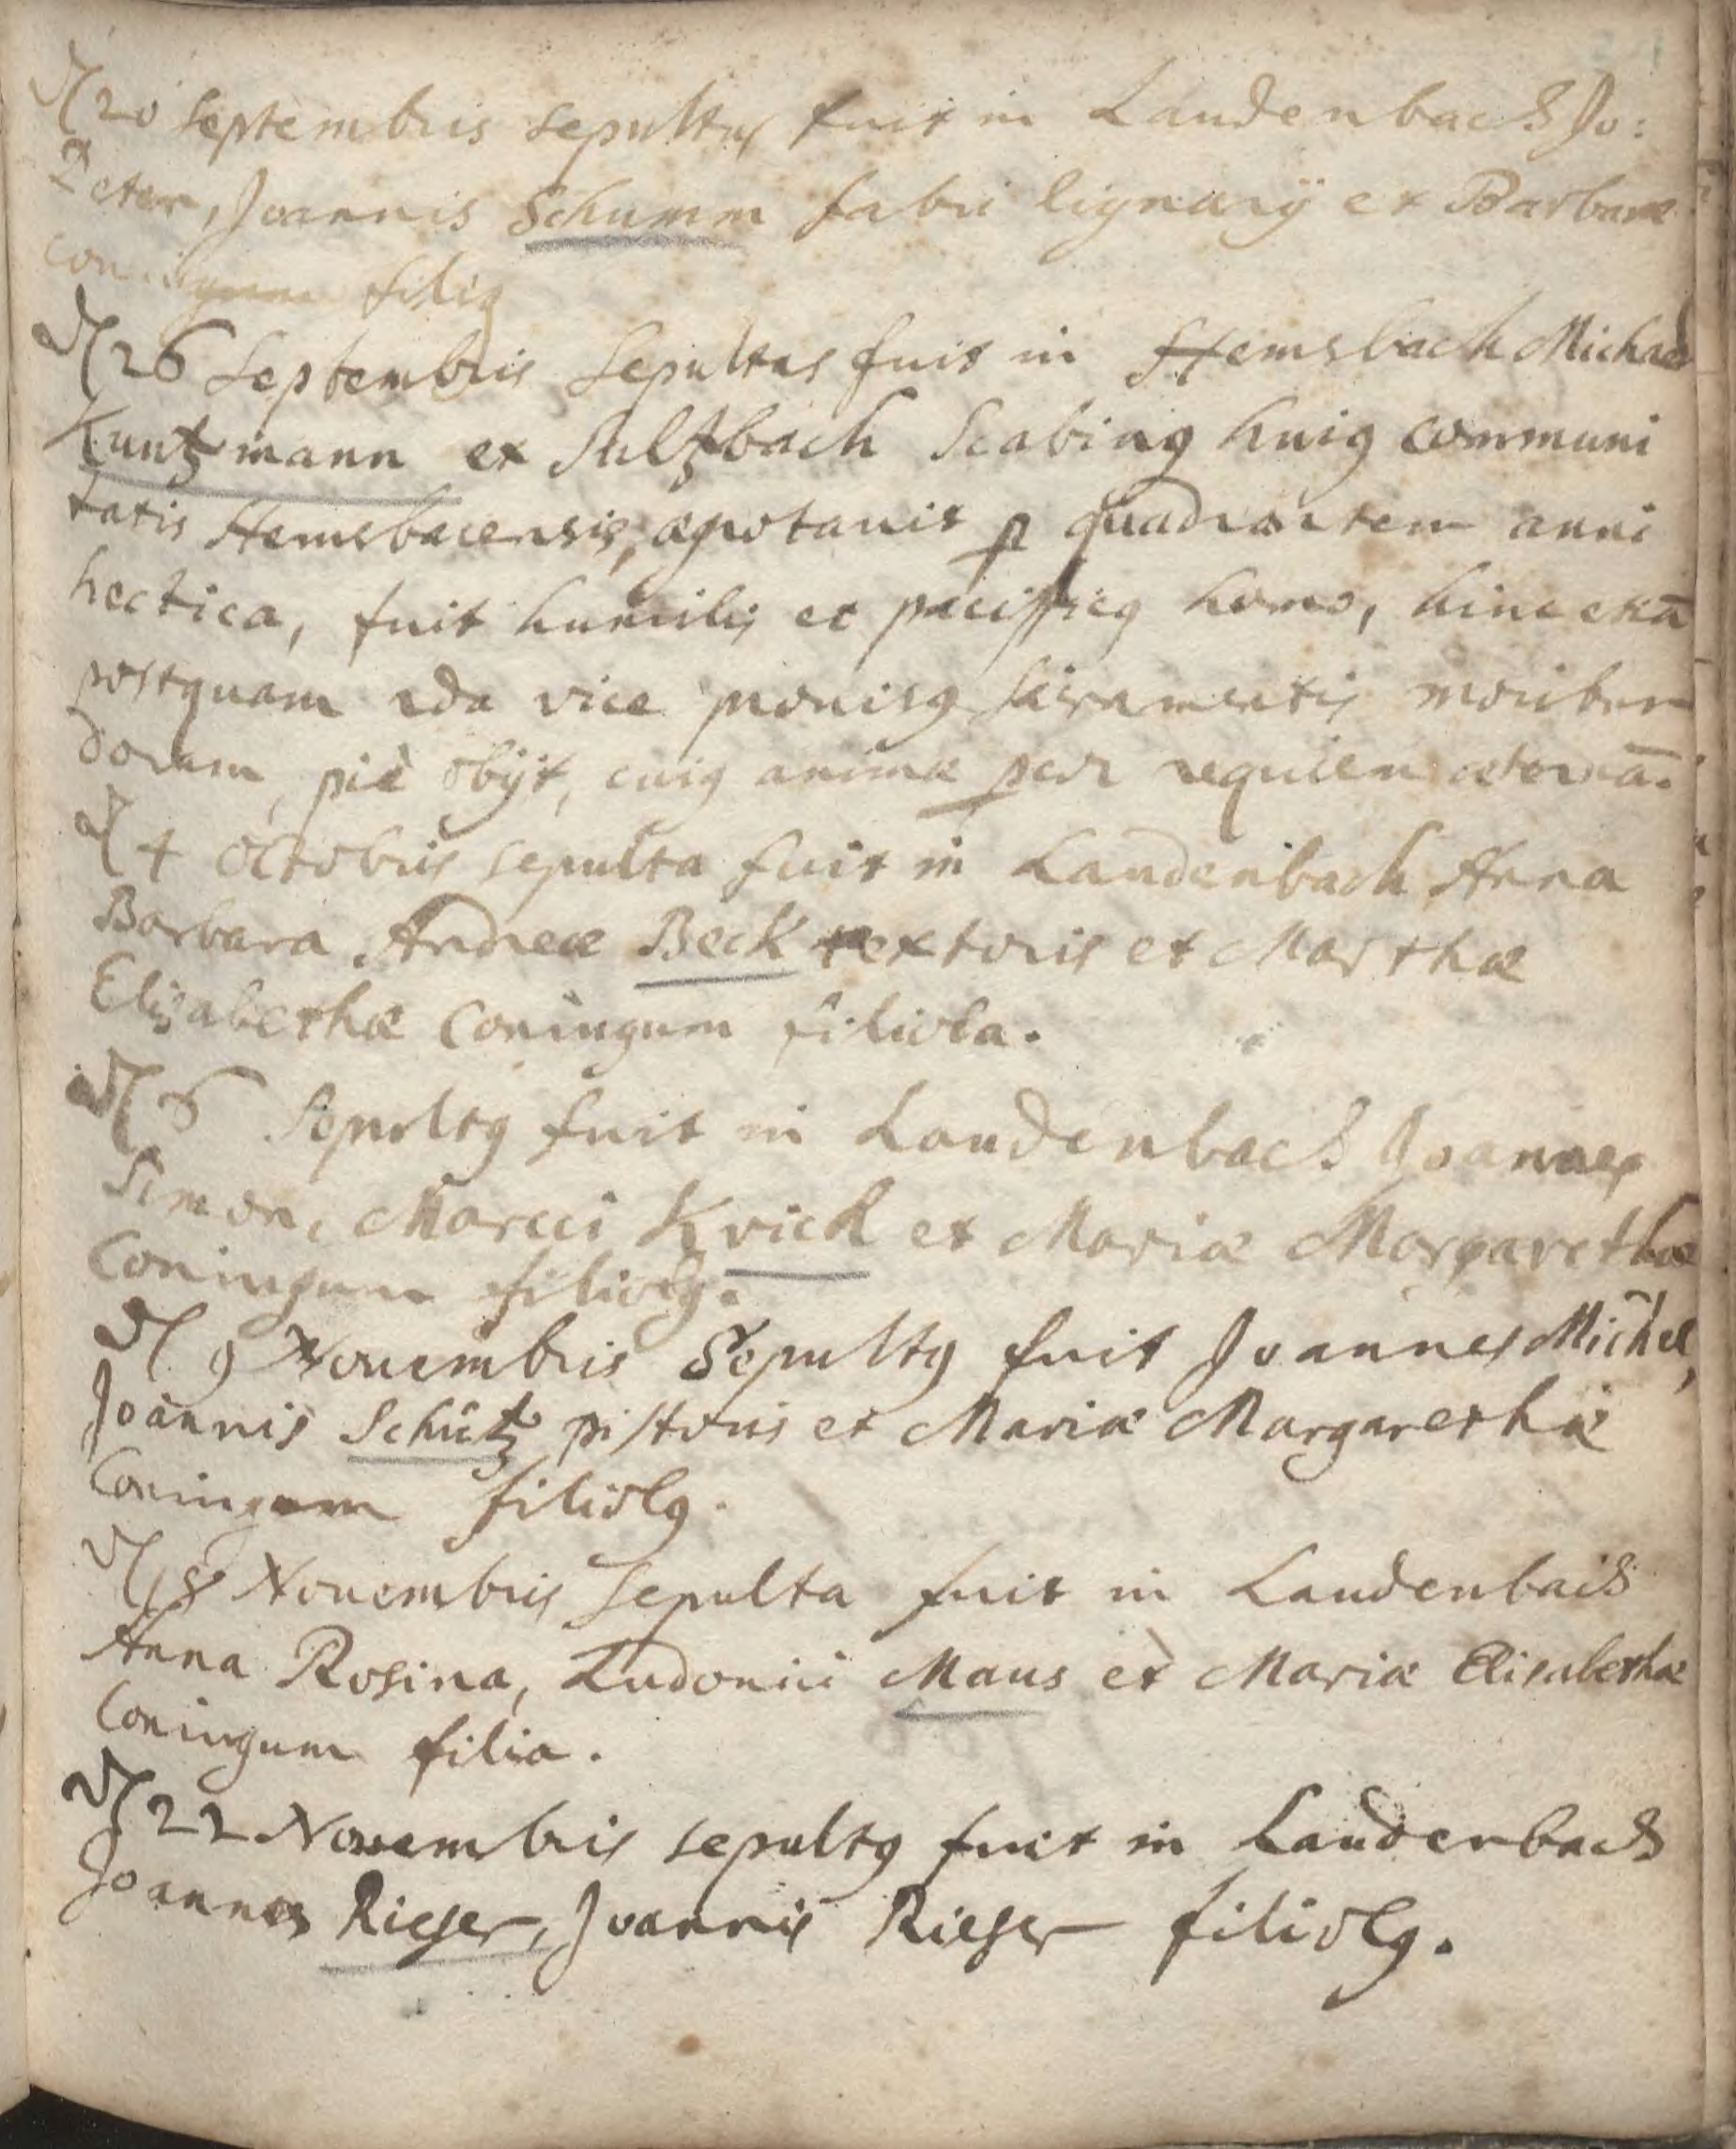 20 Septembris sepultus fuit in Laudenbach Jo:
Peter, Joannis Schumm fabri lignarÿ et Barbaræ
coniugum filius
26 Septembris Sepultus fuit in Hemsbach Michael
Kuntzmann ex Sultzbach Scabinus huius communi
tatis Hemsbacensis, ægrotauit p quadrantem anni
hectica, fuit humilis et pacificus homo, hinc etiā
postquam 2da vice prouisus Sacramentis moribun
dorum, piè obÿt, cuius animæ requiem æternā.
4 Octobris sepulta fuit in Laudenbach Anna
Barbara Andreæ Beck textoris et Marthæ
Elisabethæ Coniugum filiola.
6 Sepultus fuit in Laudenbach Joannes
Simon, Marci Krick et Mariæ Margarethæ
Coniugum filiolus.
9 Nouembris Sepultus fuit Joannes Michel,
Joannis Schütz pistoris et Mariæ Margarethæ
Coniugum filiolus.
18 Nouembris Sepulta fuit in Laudenbach
Anna Rosina, Ludouici Maus et Mariæ Elisabethæ
Coniugum filia.
22 Nouembris sepultus fuit in Laudenbach
Joannes Rieser, Joannis Rieser filiolus.